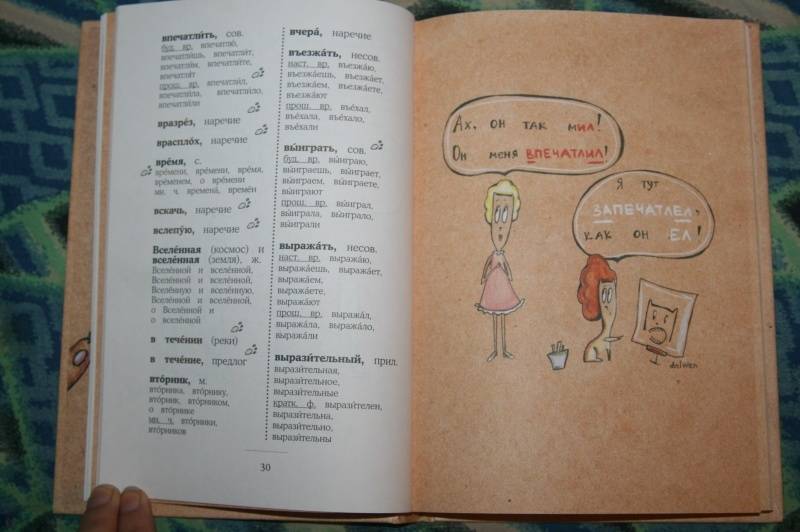 впечатли́ть, сов.
буд. вр. впечатлю́,
впечатли́шь, впечатли́т,
впечатли́м, впечатли́те,
впечатля́т
прош. вр. впечатли́л,
впечатли́ла, впечатли́ло,
впечатли́ли
вразре́з, наречие
враспло́х, наречие
вре́мя, с.
вре́мени, вре́мени, вре́мя,
вре́менем, о вре́мени
мн. ч. времена́, времён
вскачь, наречие
вслепу́ю, наречие
Вселе́нная (космос) и
вселе́нная (земля), ж.
Вселе́нной и вселе́нной,
Вселе́нной и вселе́нной,
Вселе́нную и вселе́нную,
Вселе́нной и вселе́нной,
о Вселе́нной и
о вселе́нной
в тече́нии (реки)
в тече́ние, предлог
вто́рник, м.
вто́рника, вто́рнику,
вто́рник, вто́рником,
о вто́рнике
мн. ч. вто́рники,
вто́рников
вчера́, наречие
въезжа́ть, несов.
наст. вр. въезжа́ю,
въезжа́ешь, въезжа́ет,
въезжа́ем, въезжа́ете,
въезжа́ют
прош. вр. въе́хал,
въе́хала, въе́хало,
въе́хали
вы́играть, сов.
буд. вр. вы́играю,
вы́играешь, вы́играет,
вы́играем, вы́играете,
вы́играют
прош. вр. вы́играл,
вы́играла, вы́играло,
вы́играли
выража́ть, несов.
наст. вр. выража́ю,
выража́ешь, выража́ет,
выража́ем,
выража́ете,
выража́ют
прош. вр. выража́л,
выража́ла, выража́ло,
выража́ли
вырази́тельный, прил.
вырази́тельная,
вырази́тельное,
вырази́тельные
кратк. ф. вырази́телен,
вырази́тельна,
вырази́тельно,
вырази́тельны
30
Ах, он так мил!
Он меня впечатлил!
Я тут
запечатлел,
как он ел!
dolwen